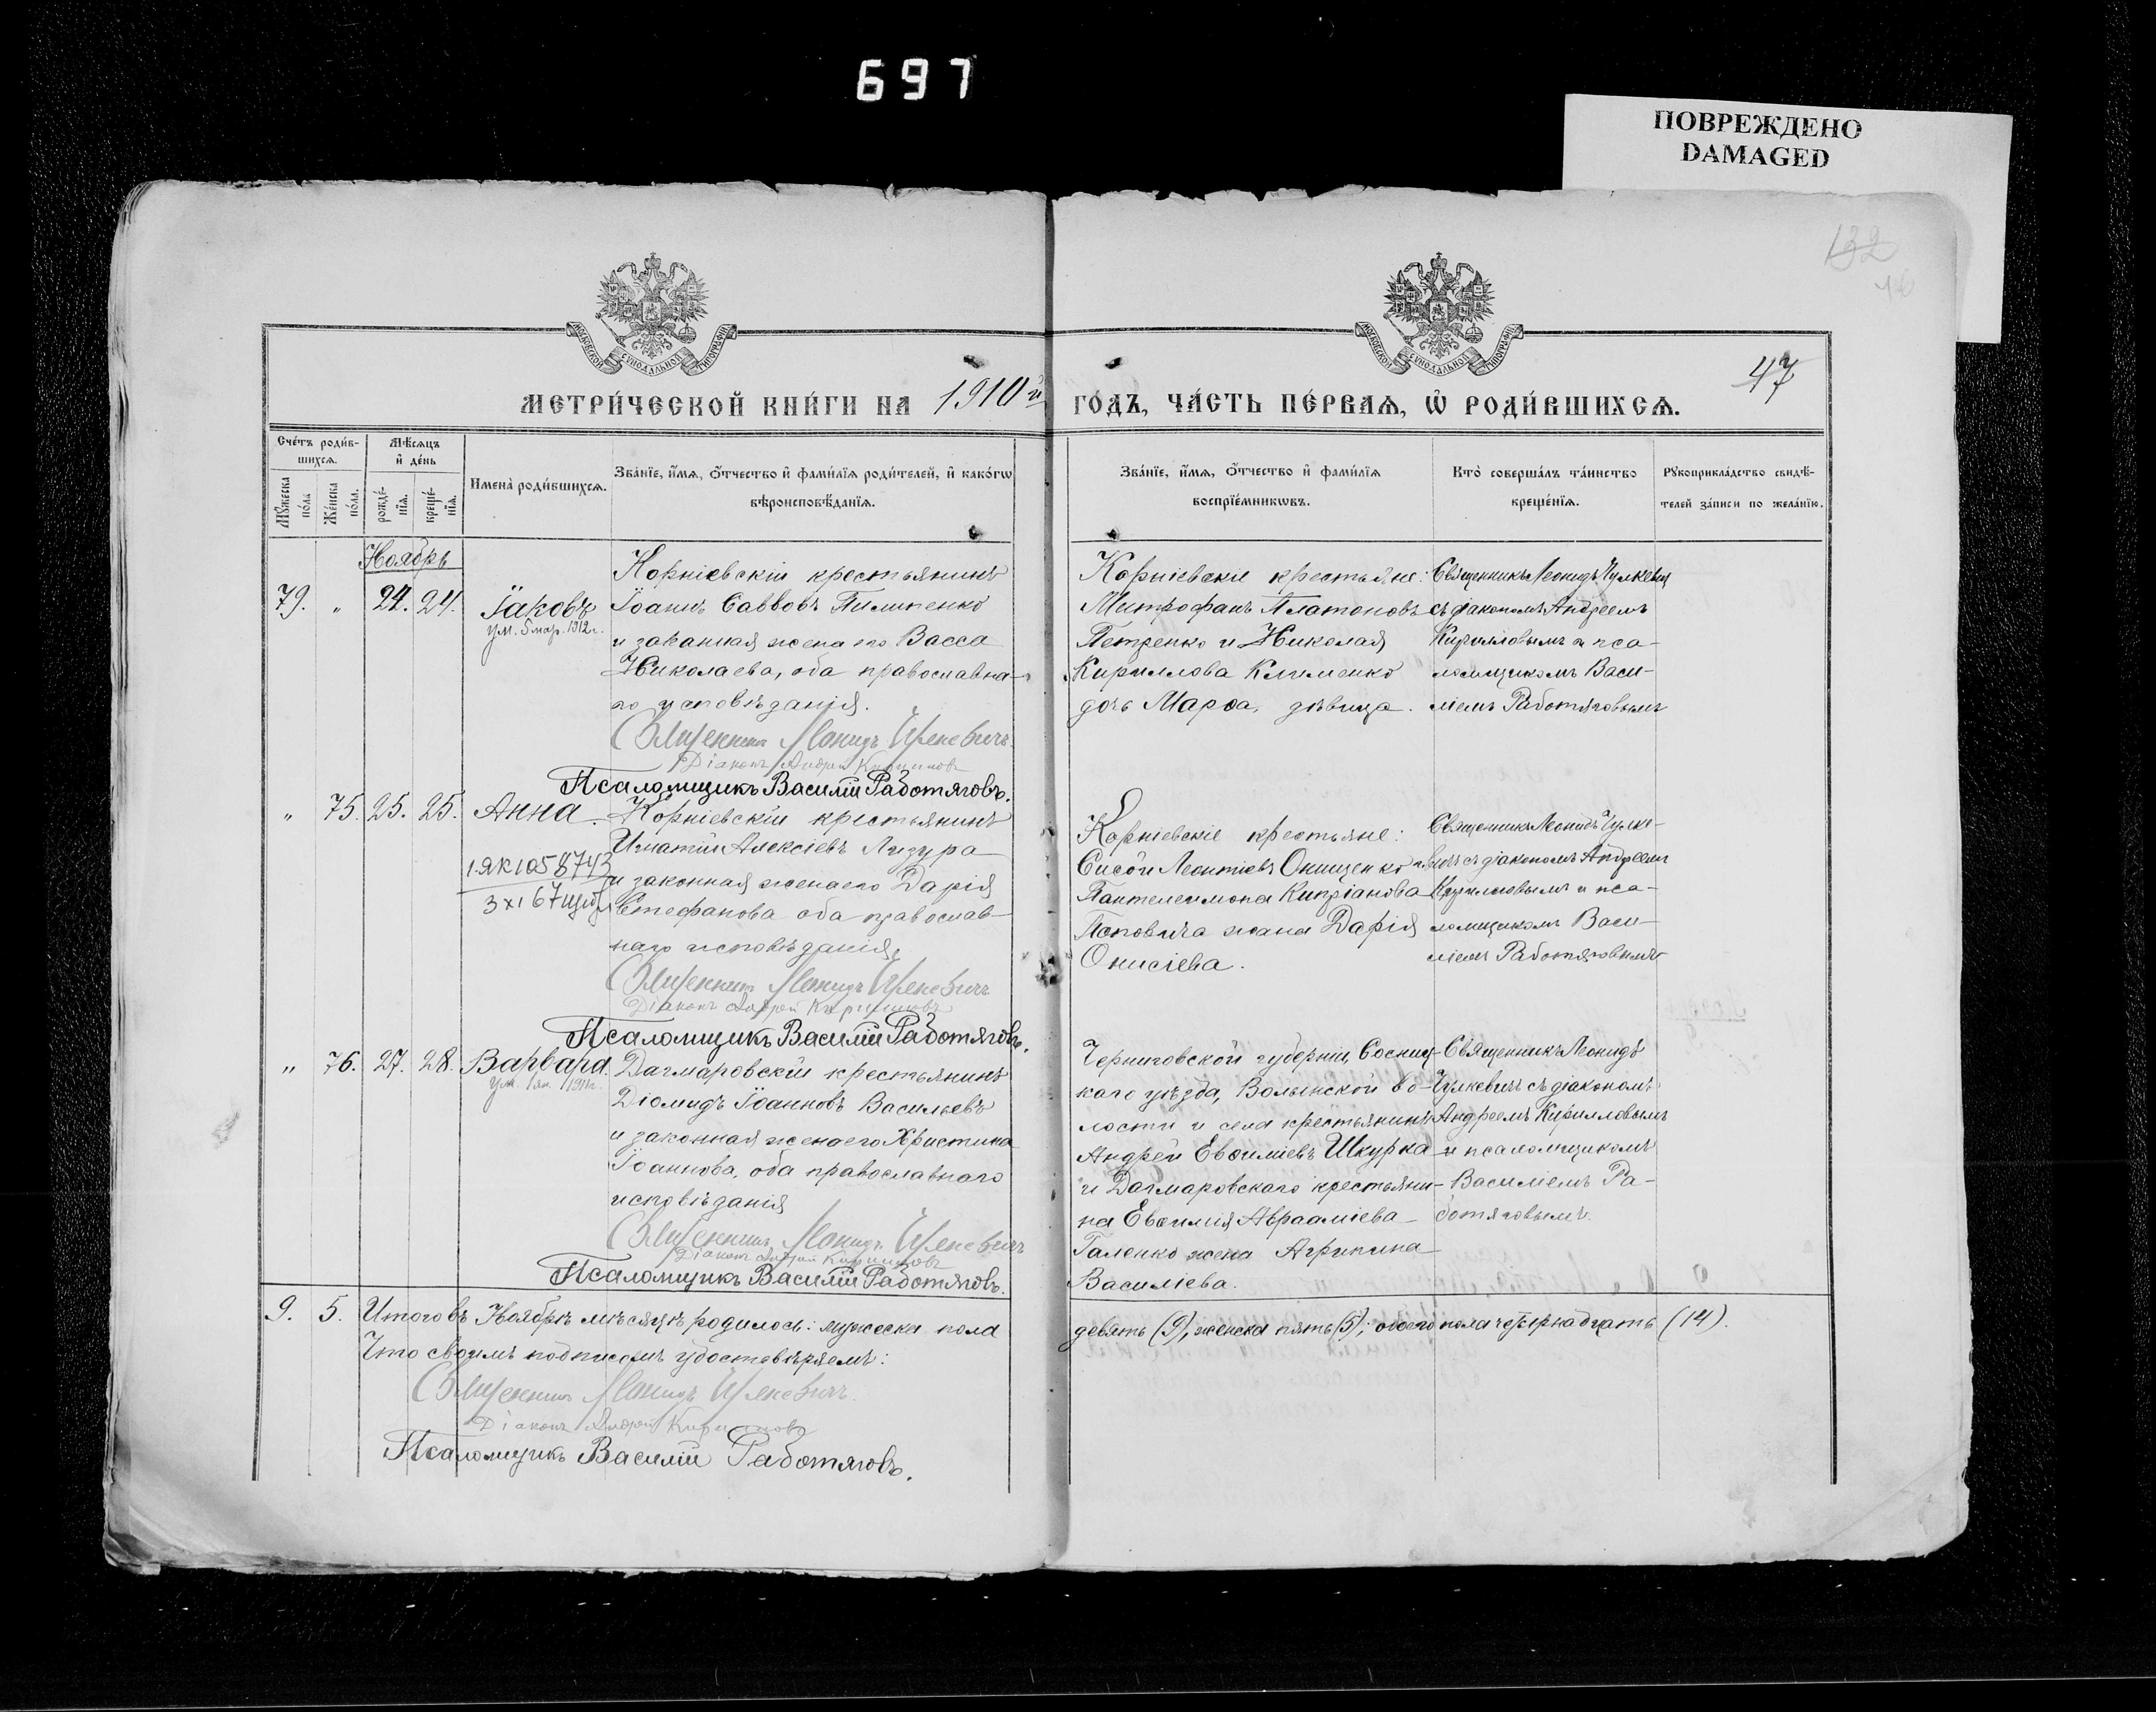 697
ПОВРЕЖДЕНО
DAMAGED
132
МОСКОВСКОЙ СѴНОДАЛЬНОЙ ТИПОГРАФІИ
МОСКОВСКОЙ СѴНОДАЛЬНОЙ ТИПОГРАФІИ
47
МЕТРИ́ЧЕСКОЙ КНИ́ГИ НА 1910й ГО́ДЪ, ЧА́СТЬ ПЕ́РВАѦ, Ѡ҆ РОДИ́ВШИХСѦ.
Сче́тъ роди́в-
шихсѧ.
Мꙋ́жеска по́ла
Же́нска по́ла.
Мѣ́сѧцъ
и҆ де́нь
рожде́-
нїѧ.
креще́-
нїѧ.
И҆мена̀ роди́вшихсѧ.
Зва́нїе, и҆́мѧ, ѻ҆́тчество и҆ фами́лїѧ роди́телей, и҆ како́гѡ
вѣроисповѣ́данїѧ.
Зва́нїе, и҆́мѧ, ѻ҆́тчество и҆ фами́лїѧ
воспрїе́мникѡвъ.
Кто̀ соверша́лъ та́инство
креще́нїѧ.
Рꙋкоприкла́дство свидѣ́-
телей за́писи по жела́нїю.
Ноябрь
79. „ 24. 24. Іаковъ
ум. 5 мар. 1912 г.
Корніевскій крестьянинъ
Іоаннъ Саввовъ Пилипенко
и законная жена его Васса
Николаева, оба православна-
го исповѣданія.
Священникъ Леонидъ Чулкевичъ
Діаконъ Андрей Кирилловъ
Псаломщикъ Василій Работяговъ.
Корніевскіе крестьяне:
Митрофанъ Платоновъ
Петренко и Николая
Кириллова Клименко
дочь Марѳа, дѣвица.
Священникъ Леонидъ Чулкевичъ
съ діакономъ Андреемъ
Кирилловымъ и пса-
ломщикомъ Васи-
ліемъ Работяговымъ
„ 75. 25. 25. Анна.
1.ЯК 1058743
3 XI 67
Корніевскій крестьянинъ
Игнатій Алексіевъ Лизура
и законная жена его Дарія
Стефанова оба православ-
наго исповѣданія.
Священникъ Леонидъ Чулкевичъ
Діаконъ Андрей Кирилловъ
Псаломщикъ Василій Работяговъ.
Корніевскіе крестьяне:
Сисой Леонтіевъ Онищенко и
Пантелеимона Кипріанова
Поповича жена Дарія
Онисіева.
Священникъ Леонидъ Чулке-
вичъ съ діакономъ Андреемъ
Кирилловымъ и пса-
ломщикомъ Васи-
ліемъ Работяговымъ
„ 76. 27. 28. Варвара.
ум. 1 ян. 1911 г.
Дагмаровскій крестьянинъ
Діомидъ Іоанновъ Васильевъ
и законная жена его Христина
Іоаннова, оба православнаго
исповѣданія
Священникъ Леонидъ Чулкевичъ
Діаконъ Андрей Кирилловъ
Псаломщикъ Василій Работяговъ.
Черниговской губерніи, Сосниц-
каго уѣзда, Волынской во-
лости и села крестьянинъ
Андрей Евѳиміевъ Шкурка
и Дагмаровскаго крестьяни-
на Евѳимія Авраамiева
Галенко жена Агрипина
Василіева.
Священникъ Леонидъ
Чулкевичъ съ діакономъ
Андреемъ Кирилловымъ
и псаломщикомъ
Василіемъ Ра-
ботяговымъ.
9. 5. Итого въ Ноябрѣ мѣсяцѣ родилось: мужеска пола девять (9), женска пять (5); обоего пола четырнадцать (14).
Что своимъ подписомъ удостовѣряемъ:
Священникъ Леонидъ Чулкевичъ.
Діаконъ Андрей Кирилловъ
Псаломщикъ Василій Работяговъ.